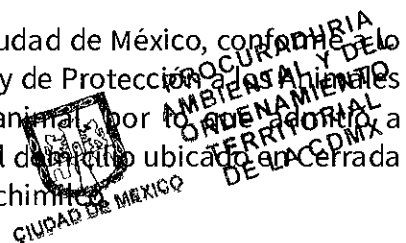 udad de México, conforme a lo
y de Protección a los Animales
animal, por lo que admitió, a
l domicilio ubicado en Cerrada
chimilco.
PROCURADURIA
AMBIENTAL Y DEL
ORDENAMIENTO
TERRITORIAL
DE LA CDMX
CIUDAD DE MEXICO